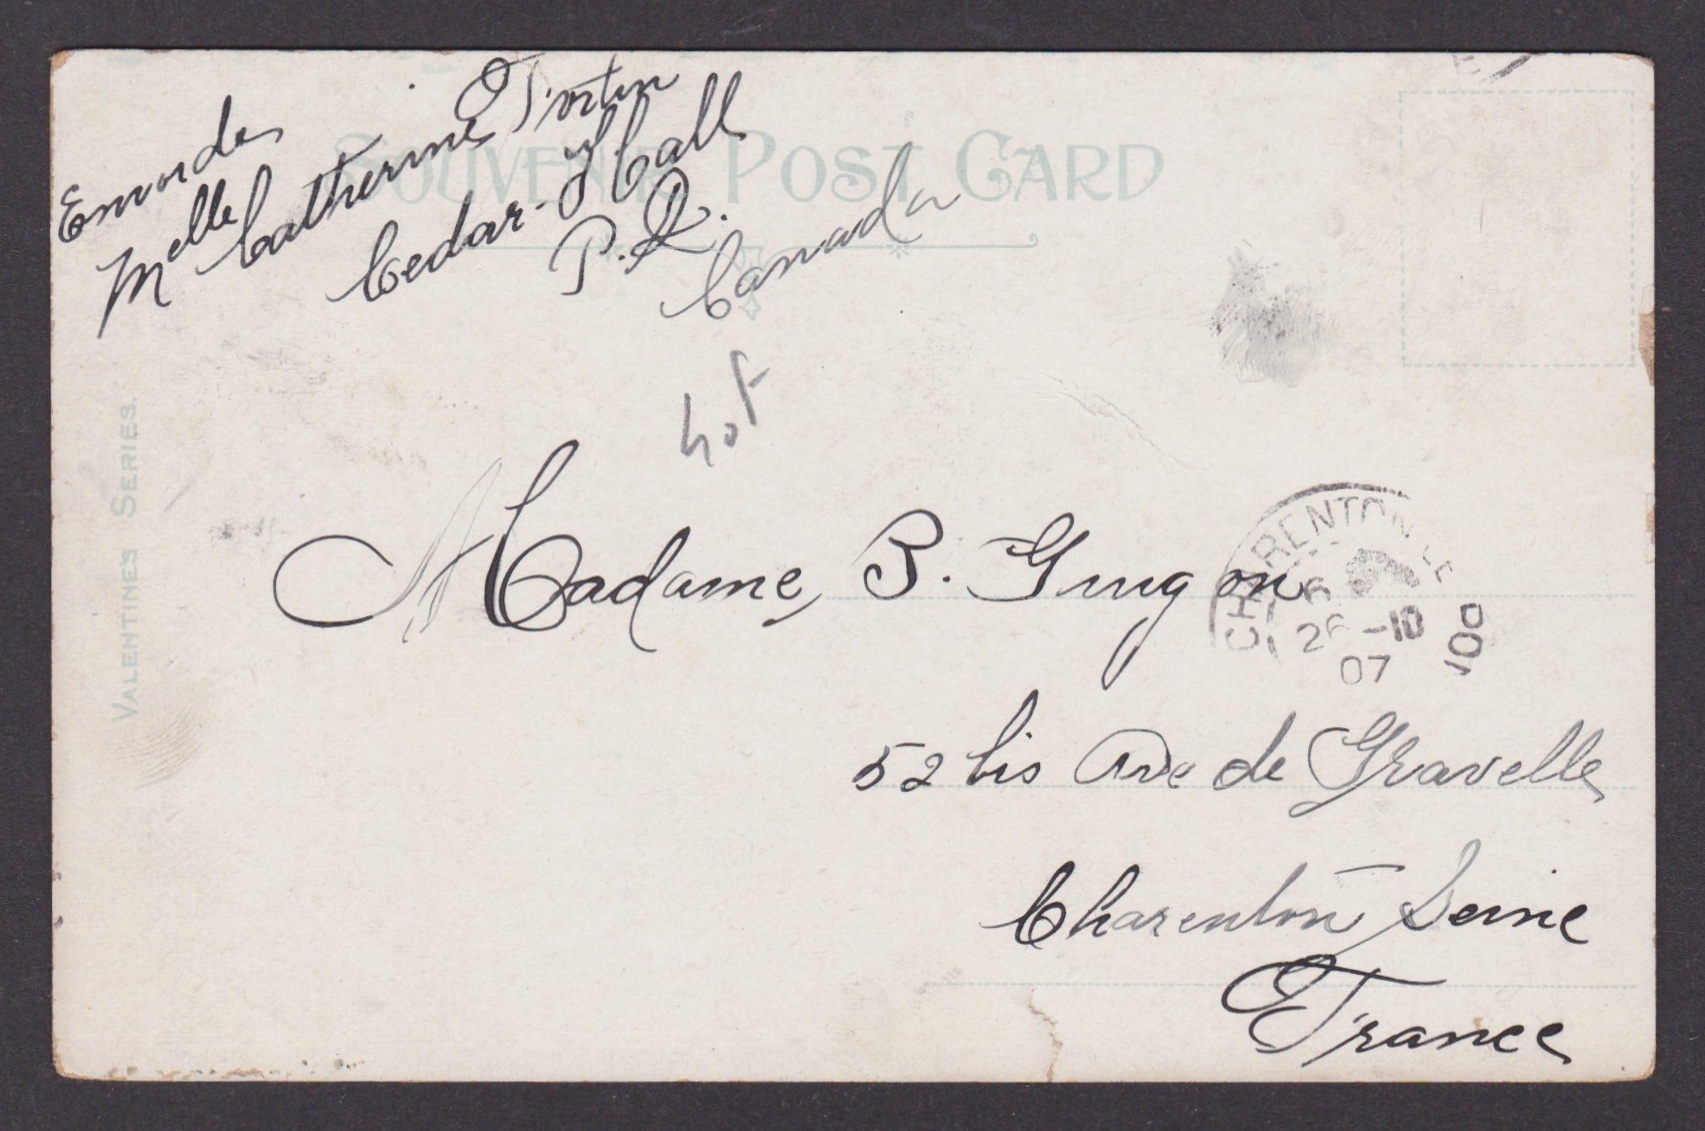 Envoi de
Melle Catherine Fortin
Cedar-Hall
P.Q.
Canada
SOUVENIR POST CARD
VALENTINE'S SERIES.
Madame, B. Guigon
CHARENTON
26 -10
07
52 bis Ave de Gravelle
Charenton Seine
France